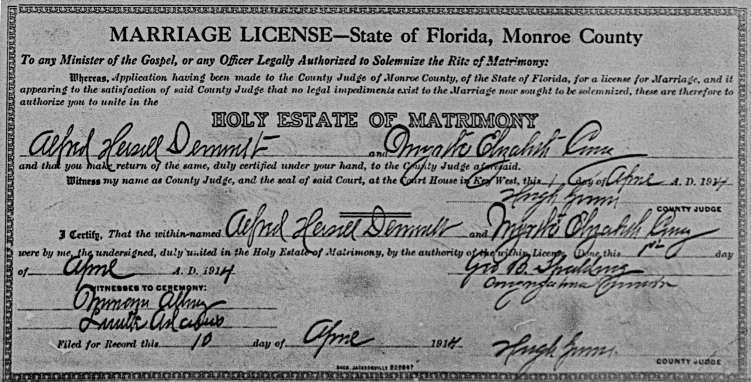 MARRIAGE LICENSE—State of Florida, Monroe County
To any Minister of the Gospel, or any Officer Legally Authorized to Solemnize the Rite of Matrimony:
Whereas, Application having been made to the County Judge of Monroe County, of the State of Florida, for a license for Marriage, and it
appearing to the satisfaction of said County Judge that no legal impediments exist to the Marriage now sought to be solemnized, these are therefore to
authorize you to unite in the
HOLY ESTATE OF MATRIMONY
Alfred and Elizabeth
and that you make return of the same, duly certified under your hand, to the County Judge aforesaid.
Witness my name as County Judge, and the seal of said Court, at the Court House in Key West, this 1 day of April A. D. 1914
Hugh Gunn
COUNTY JUDGE
I Certify, That the within-named Alfred and Elizabeth
were by me, the undersigned, duly united in the Holy Estate of Matrimony, by the authority of the within License. Done this 1st day
of April A. D. 1914.
Geo B. Spalding
WITNESSES TO CEREMONY:
Filed for Record this 10 day of April 1914
Hugh Gunn
COUNTY JUDGE